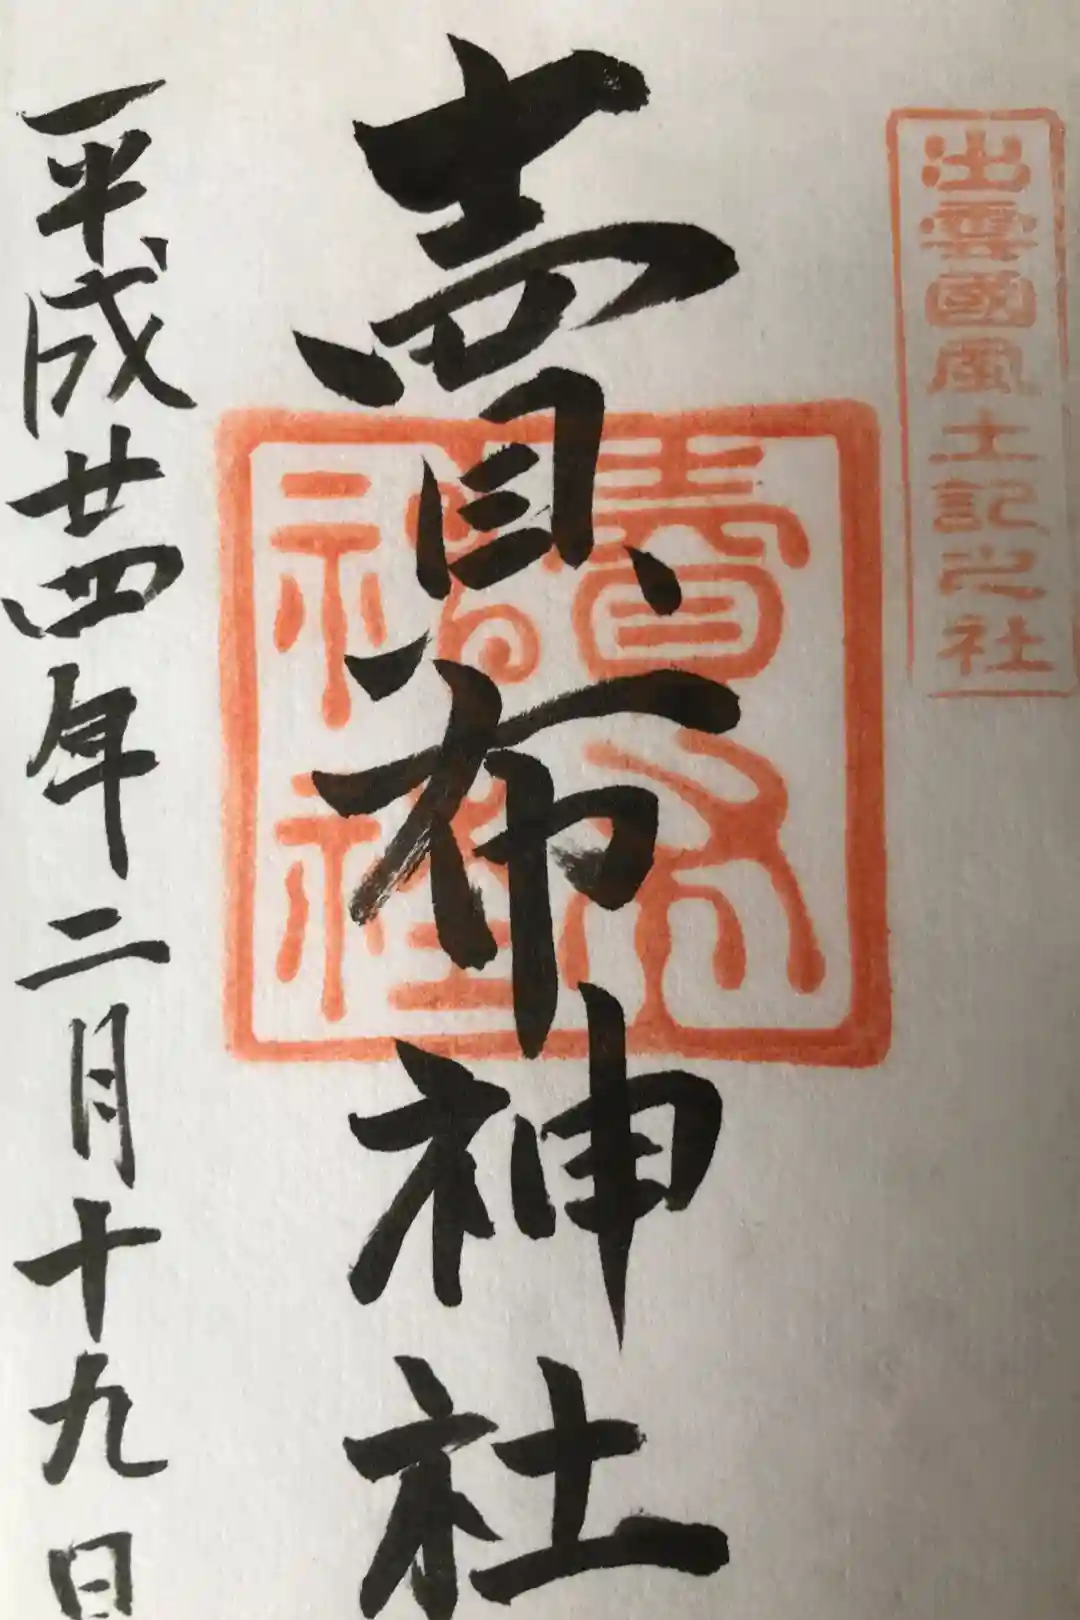 出雲國風土記之社
賣布神社
賣布
神社
平成廿四年二月十九日